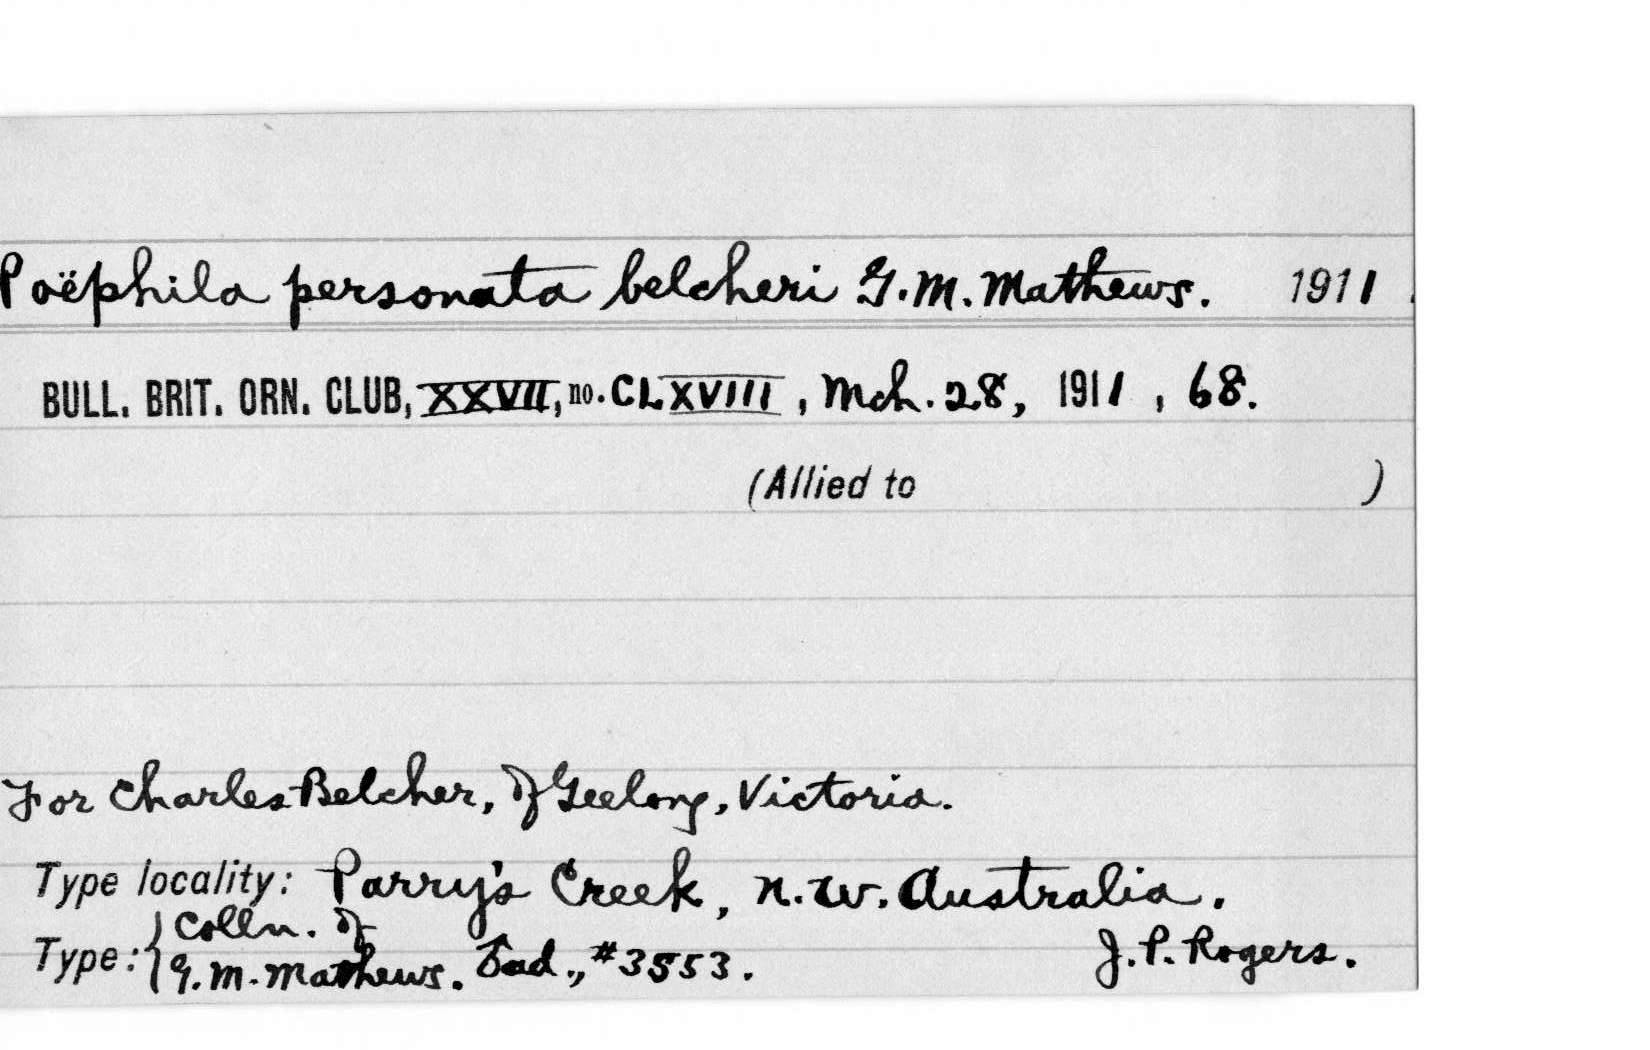 Poëphila personata belcheri G.M. Mathews. 1911.
BULL. BRIT. ORN. CLUB, XXVII, no. CLXVIII, Mch. 28, 1911, 68.
(Allied to )
For Charles Belcher, of Geelong, Victoria.
Type locality: Parry's Creek, N.W. Australia.
Type: { Colln. of
G.M. Mathews. ad., #3553. J.P. Rogers.